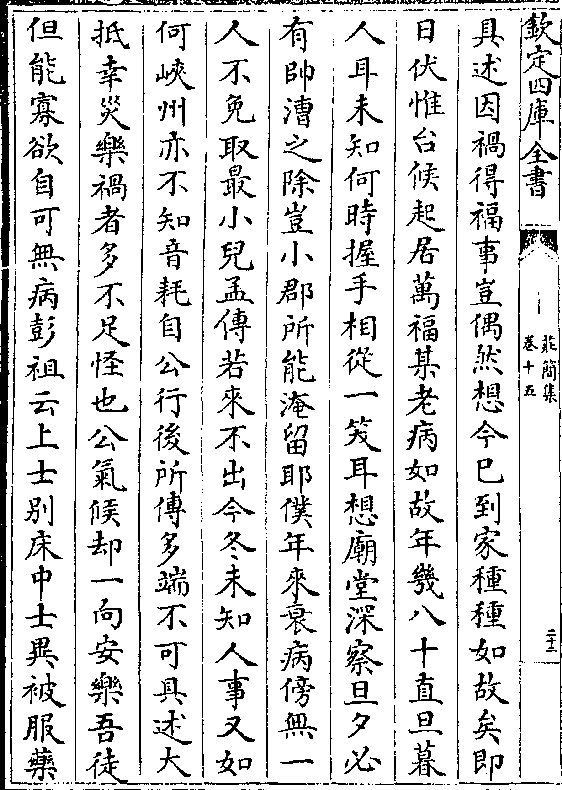 欽定四庫全書
莊簡集
卷十五
二十三
具述因禍得福事豈偶然想今已到家種種如故矣即
日伏惟台候起居萬福某老病如故年幾八十直旦暮
人耳未知何時握手相從一笑耳想廟堂深察旦夕必
有帥漕之除豈小郡所能淹留耶僕年來衰病傍無一
人不免取最小兒孟傳若來不出今冬未知人事又如
何峽州亦不知音耗自公行後所傳多端不可具述大
抵幸災樂禍者多不足怪也公氣候却一向安樂吾徒
但能寡欲自可無病彭祖云上士别床中士異被服藥